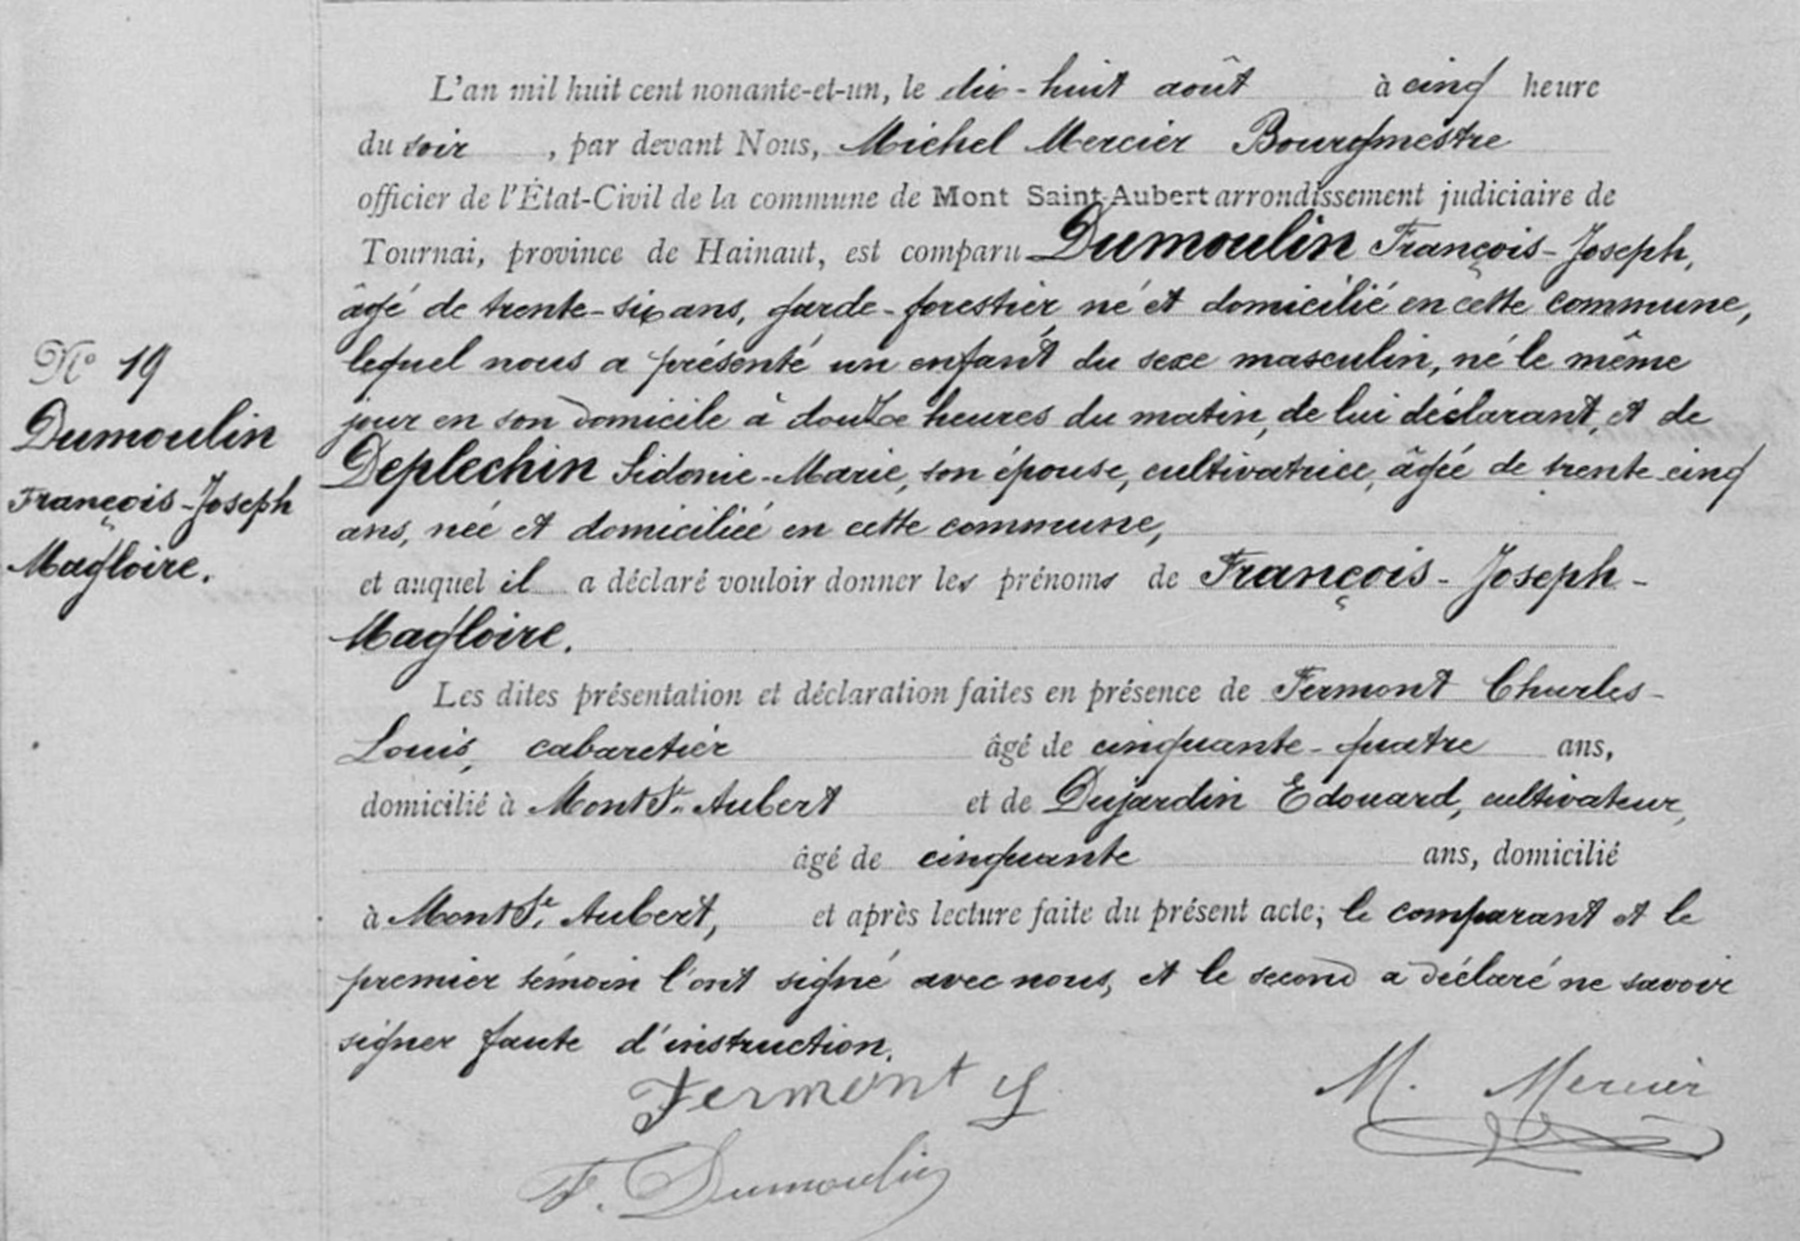 L'an mil huit cent nonante-et-un, le dix-huit août à cinq heure
du soir, par devant Nous, Michel Mercier Bourgmestre
officier de l'État-Civil de la commune de Mont Saint-Aubert arrondissement judiciaire de
Tournai, province de Hainaut, est comparu Dumoulin François-Joseph,
âgé de trente-six ans, garde-forestier, né et domicilié en cette commune,
lequel nous a présenté un enfant du sexe masculin, né le même
jour en son domicile à douze heures du matin, de lui déclarant, et de
Deplechin Sidonie-Marie, son épouse, cultivatrice, âgée de trente-cinq
ans, née et domiciliée en cette commune,
et auquel il a déclaré vouloir donner les prénoms de François-Joseph-
Magloire.
Les dites présentation et déclaration faites en présence de Fermont Charles-
Louis, cabaretier âgé de cinquante-quatre ans,
domicilié à Mont St. Aubert et de Dujardin Edouard, cultivateur,
âgé de cinquante ans, domicilié
à Mont St. Aubert, et après lecture faite du présent acte; le comparant et le
premier témoin l'ont signé avec nous, et le second a déclaré ne savoir
signer faute d'instruction.
Fermont
M. Mercier
F. Dumoulin
N° 19
Dumoulin
François-Joseph
Magloire.